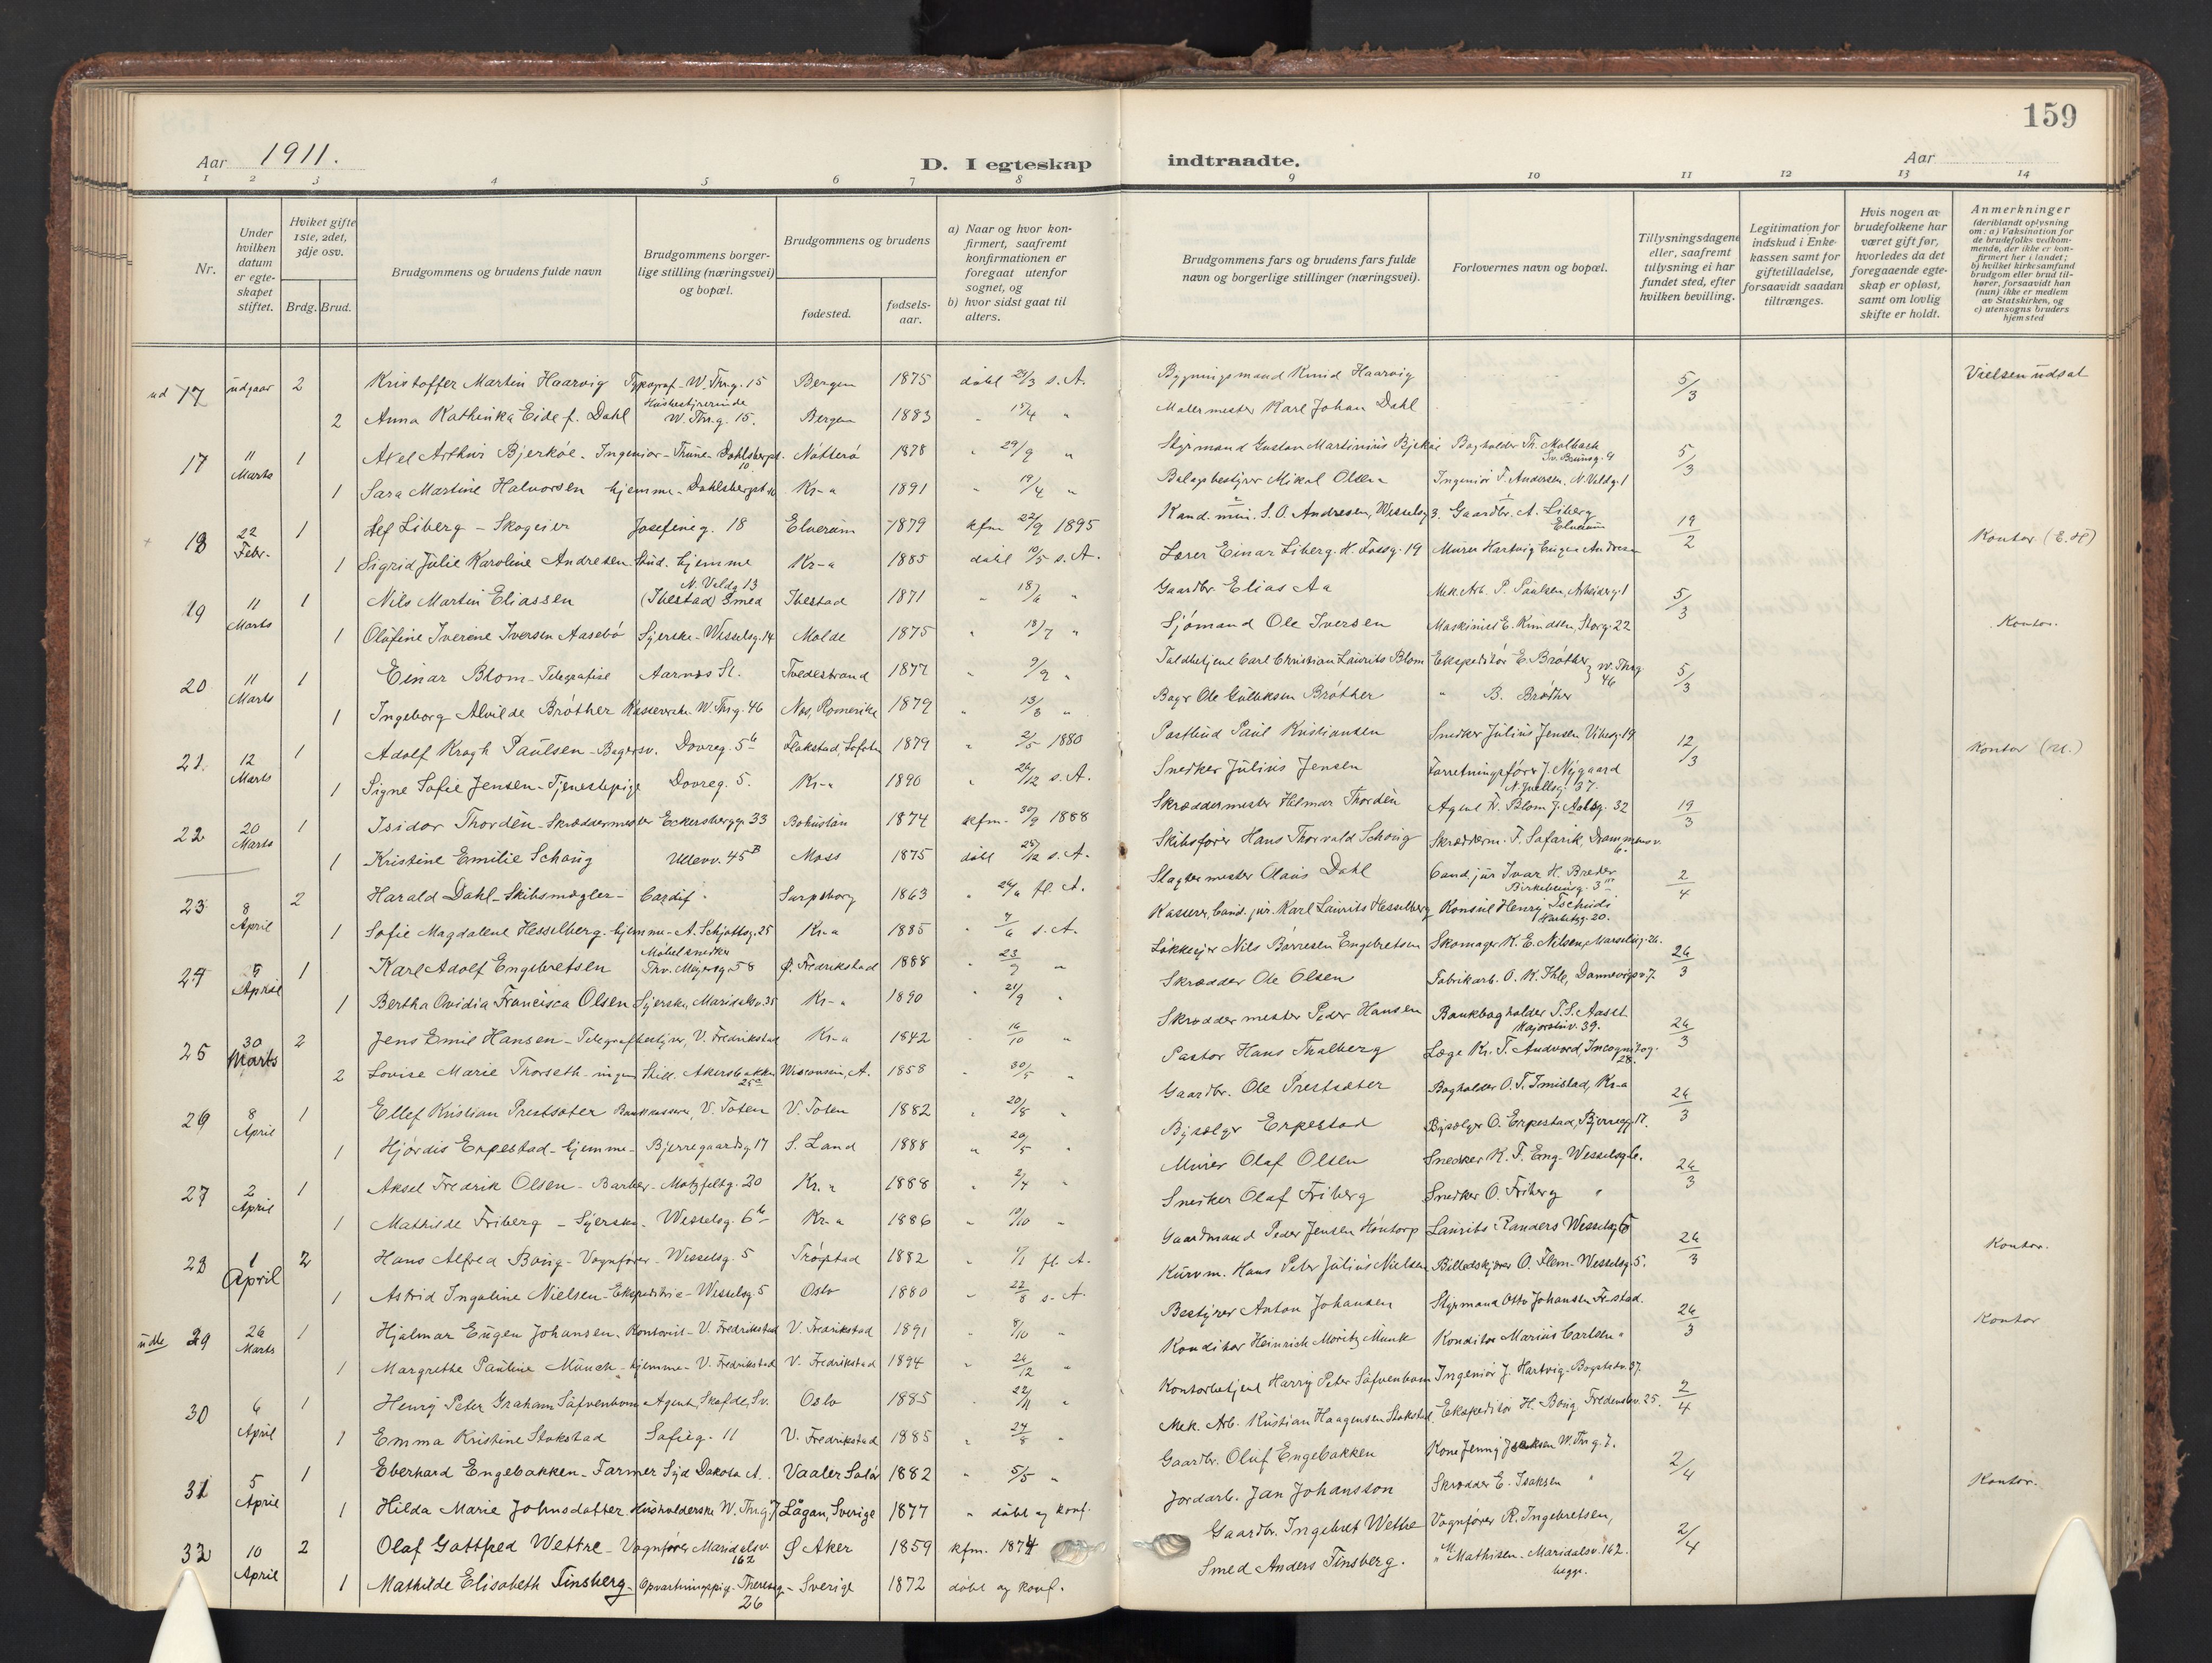 159
Aar 1911.
D. I egteskap indtraadte.
Aar
1 2 3 4 5 6 7 8 9 10 11 12 13 14
Nr.
Under hvilken datum er egteskapet stiftet.
Hviket gifte 1ste, 2det, 3dje osv.
Brdg. Brud.
Brudgommens og brudens fulde navn
Brudgommens borgerlige stilling (næringsvei) og bopæl.
Brudgommens og brudens
fødested.
fødselsaar.
a) Naar og hvor konfirmert, saafremt konfirmationen er foregaat utenfor sognet, og
b) hvor sidst gaat til alters.
Brudgommens fars og brudens fars fulde navn og borgerlige stillinger (næringsvei).
Forlovernes navn og bopæl.
Tillysningsdagene eller, saafremt tillysning ei har fundet sted, efter hvilken bevilling.
Legitimation for indskud i Enkekassen samt for giftetilladelse, forsaavidt saadan tiltrænges.
Hvis nogen av brudefolkene har været gift før, hvorledes da det foregaaende egteskap er opløst, samt om lovlig skifte er holdt.
Anmerkninger (deriblandt oplysning om: a) Vaksination for de brudefolks vedkommende, der ikke er konfirmert her i landet; b) hvilket kirkesamfund brudgom eller brud tilhører, forsaavidt han (hun) ikke er medlem av Statskirken, og c) utensogns bruders hjemsted
ud 17 udgaar 2 Kristoffer Martin Haarvig Typograf - W. Thrg. 15 Bergen 1875 døbt 29/3 s. A. Bygningsmand Knud Haarvig 5/3 Vielsen udsat
2 Anna Kathinka Eide f. Dahl Husbestyrerinde W. Thrg. 15. Bergen 1883 " 15/4 " Malermester Karl Johan Dahl
17 11 Marts 1 Axel Arthur Bjerköe - Ingeniør - Thune - Dahlsbergst. 10 Nötterö 1878 " 29/9 " Styrmand Gustav Martinius Bjerköe Bogholder Th. Malbach Sv. Brunsg. 9 5/3
1 Sara Martine Halvorsen hjemme - Dahlsbergst. 10 Kr-a 1891 " 19/4 " Bolagsbestyrer Mikal Olsen Ingeniør F. Andersen, N. Valdg. 1
18 22 Febr. 1 Alf Liberg - Skogeier Josefineg. 18 Elverum 1879 kfm 22/9 1895 Kand. min. S. O. Andresen, Wesselsg 3. Gaardbr. A. Liberg Elverum 19/2 Kontor (E. H)
1 Sigrid Julie Karoline Andresen Stud. hjemme Kr-a 1885 døbt 10/5 s. A. Lærer Einar Liberg. H. Fossg. 19 Murer Hartvig Eugen Andresen
19 11 Marts 1 Nils Martin Eliassen N. Valdg 13 (Ibestad) Smed Ibestad 1871 " 18/6 " Gaardbr. Elias Aa Mek. Arb. P. Paulsen, Arbeiderg. 1 5/3
1 Olufine Iverine Iversen Aasebö Syerske - Wesselsg. 14 Molde 1875 " 18/7 " Sjömand Ole Iversen Maskinist E. Knudsen, Storg. 22 Kontor.
20 11 Marts 1 Einar Blom - Telegrafist Aarnæs St. Tvedestrand 1877 9/9 " Toldbetjent Carl Christian Laurits Blom Ekspeditör E. Bröther W. Thrg. 46 5/3
1 Ingeborg Alvilde Bröther Kassererske. W. Thrg. 46 Næs, Romerike 1879 " 13/8 " Bager Ole Gulliksen Bröther " B. Bröther
21. 12 Marts 1 Adolf Krogh Paulsen - Bagersv. Dovreg. 5 b Flakstad, Lofoten 1879 " 2/5 1880 Postbud Paul Kristiansen Snedker Julius Jensen Vibesg. 19 12/3 Kontor (U.)
1 Signe Sofie Jensen - Tjenestepige Dovreg. 5. Kr-a 1890 " 26/12 s. A. Snedker Julius Jensen Forretningsförer J. Nygaard N. Juelsg. 37.
22 20 Marts 1 Isidor Thordén - Skræddermester Eckersbergg. 33 Bohuslän 1874 kfm. 30/9 1888 Skræddermester Helmer Thordén Agent F. Blom J. Aallsg. 32 19/3
1 Kristine Emilie Schoug Ullevv. 45 B Moss 1875 døbt 25/12 s. A. Skibsförer Hans Thorvald Schoug Skrædderm. F. Safarik, Drammensv. 6.
23 8 April 2 Harald Dahl - Skibsmægler - Cardif. Sarpsborg 1863 " 26/6 fl. A. Slagtermester Olaus Dahl Cand. jur Ivar H. Breder Birkebeinerg. 3 2/4
1 Sofie Magdalene Hesselberg. hjemme - A. Schjøttsg. 25 Kr-a 1885 " 7/6 s. A. Kasserer, Cand. jur. Karl Laurits Hesselberg Konsul Henry Tschudi Harbitzg. 20.
24 5 April 1 Karl Adolf Engebretsen Møbelsnedker Thv. Meyersg. 58 Ø. Fredrikstad 1888 " 23/7 " Løkkeeier Nils Børresen Engebretsen Skomager K. E. Nilsen, Marselisg. 26. 26/3
1 Bertha Ovidia Francisca Olsen Syerske, Maridalsv. 35 Kr-a 1890 " 21/9 " Skrædder Ole Olsen Fabrikarb. O. K. Ihle, Dannevigsv. 7.
25 30 Marts 2 Jens Emil Hansen - Telegrafbestyrer, V. Fredrikstad Kr-a 1842 " 16/10 " Skræddermester Peder Hansen Bankbogholder T. S. Aaset Majorstuv. 39. 26/3
2 Lovise Marie Thorseth - ingen Still. Akersbakken 25 a Wisconsin, A. 1858 " 30/5 " Pastor Hans Thalberg Læge Kr. F. Andvord, Incognitog. 28.
26 8 April 1 Ellef Kristian Prestsæter Bankkasserer, V. Toten V. Toten 1882 " 20/8 " Gaardbr. Ole Prestsæter Bogholder O. T. Imislad, Kr-a 26/3
1 Hjördis Erpestad - hjemme - Bjerregaardsg. 17 S. Land 1888 " 20/5 " Bysælger Erpestad Bysælger O. Erpestad, Bjerregg. 17.
27 2 April 1 Aksel Fredrik Olsen - Barber - Motzfeltg. 20 Kr. a 1888 " 2/4 " Murer Olaf Olsen Snedker K. F. Eng. Wesselsg 6. 26/3
1 Mathilde Friberg - Syerske - Wesselsg. 6 b Kr-a 1886 " 10/10 " Snedker Olaf Friberg Snedker O. Friberg "
28 1 April 2 Hans Alfred Boug - Vognfører - Wesselsg. 5 Trøgstad 1882 " /1 fl. A. Gaardmand Peder Jensen Hontorp Laurits Randers Wesselsg 5 26/3 Kontor.
1 Astrid Ingoline Nielsen - Ekspeditrice - Wesselsg 5 Oslo 1880 " 22/8 s. A. Kurvm. Hans Peter Julius Nielsen Billedskjærer O. Flem - Wesselsg. 5.
udb 29 26 Marts 1 Hjalmar Eugen Johansen. Kontorist - V. Fredrikstad V. Fredrikstad 1891 " 8/10 " Bestyrer Anton Johansen Styrmand Otto Johansen Fr-stad. 26/3 Kontor
1 Margrethe Pauline Münch - hjemme - V. Fredrikstad V. Fredrikstad 1894 " 26/12 " Konditor Heinrich Moritz Munk Konditor Marius Carlsen "
30 6 April 1 Henry Peter Graham Säfvenbom Agent, Skøfde, Sv. Oslo 1885 " 22/11 " Kontorbetjent Harry Peter Säfvenbom Ingeniør J. Hartvig - Bogstadv. 37. 2/4
1 Emma Kristine Stokstad Sofieg. 11 V. Fredrikstad 1885 " 24/8 " Mek. Arb. Kristian Haagensen Stokstad. Ekspeditör H. Boug. Fredensbv. 25.
31 5 April 1 Eberhard Engebakken - Farmer Syd Dakota A. Vaaler Solør 1882 " 5/5 " Gaardbr. Oluf Engebakken Kone Jenny Isaksen W. Thrg. 7. 2/4 Kontor.
1 Hilda Marie Johnsdatter. Husholderske W. Thrg. 7 Lågan, Sverige 1877 " døbt og konf. Jordarb. Jan Johansson Skrædder E. Isaksen "
32 10 April 2 Olaf Gottfred Wettre - Vognfører Maridalsv. 162 Ø Aker 1859 kfm. 1874 Gaardbr. Ingebret Wettre Vognfører R. Ingebretsen, 2/4
1 Mathilde Elisabeth Tinsberg - Opvartningspig. Theresesg. 26 Sverige 1872 døbt og konf. Smed Anders Tinsberg. " M. Mathisen - Maridalsv. 162. begge.